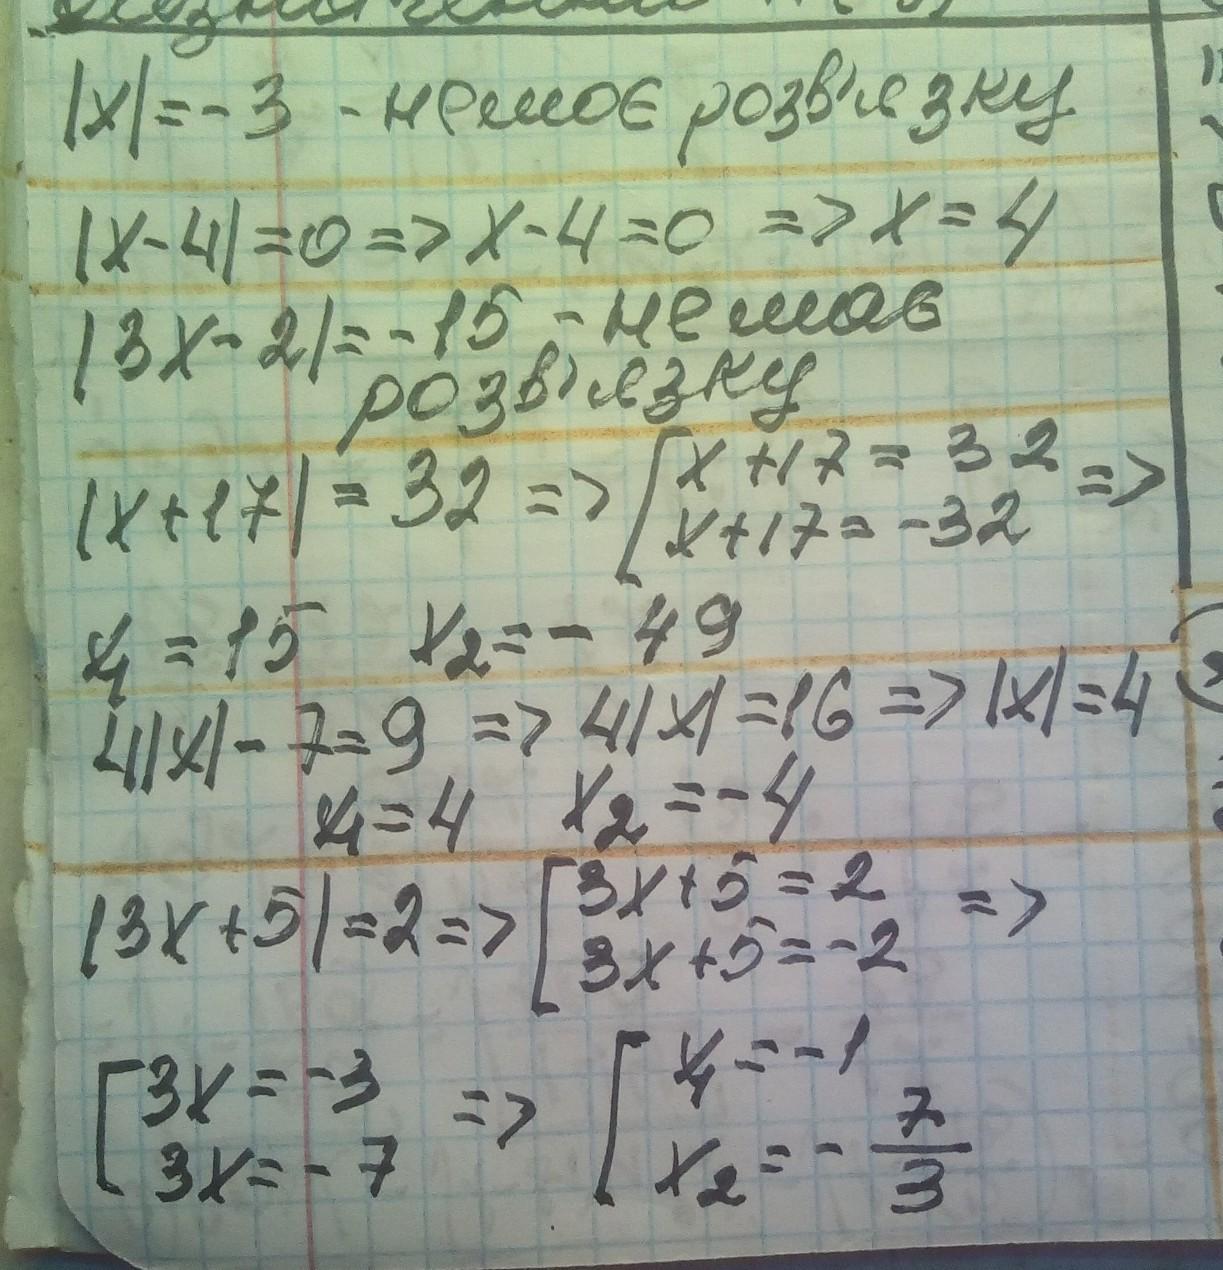 |x| = -3 - немає розв'язку
|x-4| = 0 => x-4 = 0 => x = 4
|3x-2| = -15 - не має
розв'язку
|x+17| = 32 => [ x+17 = 32 =>
x+17 = -32
x1 = 15 x2 = - 49
4|x| - 7 = 9 => 4|x| = 16 => |x| = 4
x1 = 4 x2 = -4
|3x+5| = 2 => [ 3x+5 = 2 =>
3x+5 = -2
[ 3x = -3 => [ x1 = -1
3x = -7 x2 = - 7/3